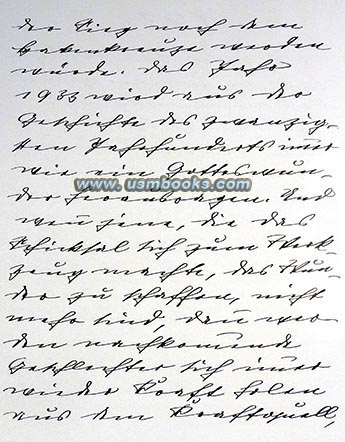 der Sieg nach dem
Hakenkreuze werden
würde. Das Jahr
1933 wird aus der
Geschichte des zwanzig-
sten Jahrhunderts immer
wie ein Gotteswun-
www.usmbooks.com
der hervorragen. Und
wenn jene, die das
Schicksal sich zum Werk-
zeug machte, das Wun-
der zu schaffen, nicht
mehr sind, dann wer-
den nachkommende
Geschlechter sich immer
wieder Kraft holen
aus dem Kraftquell,